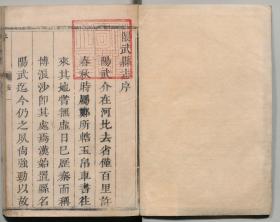 陽武縣志序
陽武介在河北去省僅百里許
春秋時屬鄭所轄玉帛車書往
來其地嘗無虛日已歷秦而稱
博浪沙即其處焉漢始置縣名
陽武迄今仍之夙尚強勁以故